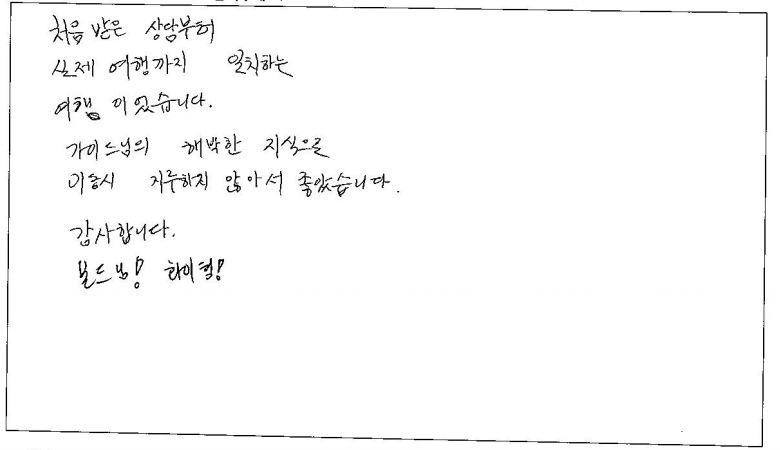 처음 받은 상담부터
실제 여행까지 일치하는
여행 이었습니다.
가이드님의 해박한 지식으로
이동시 지루하지 않아서 좋았습니다.
감사합니다.
볼드님! 화이팅!